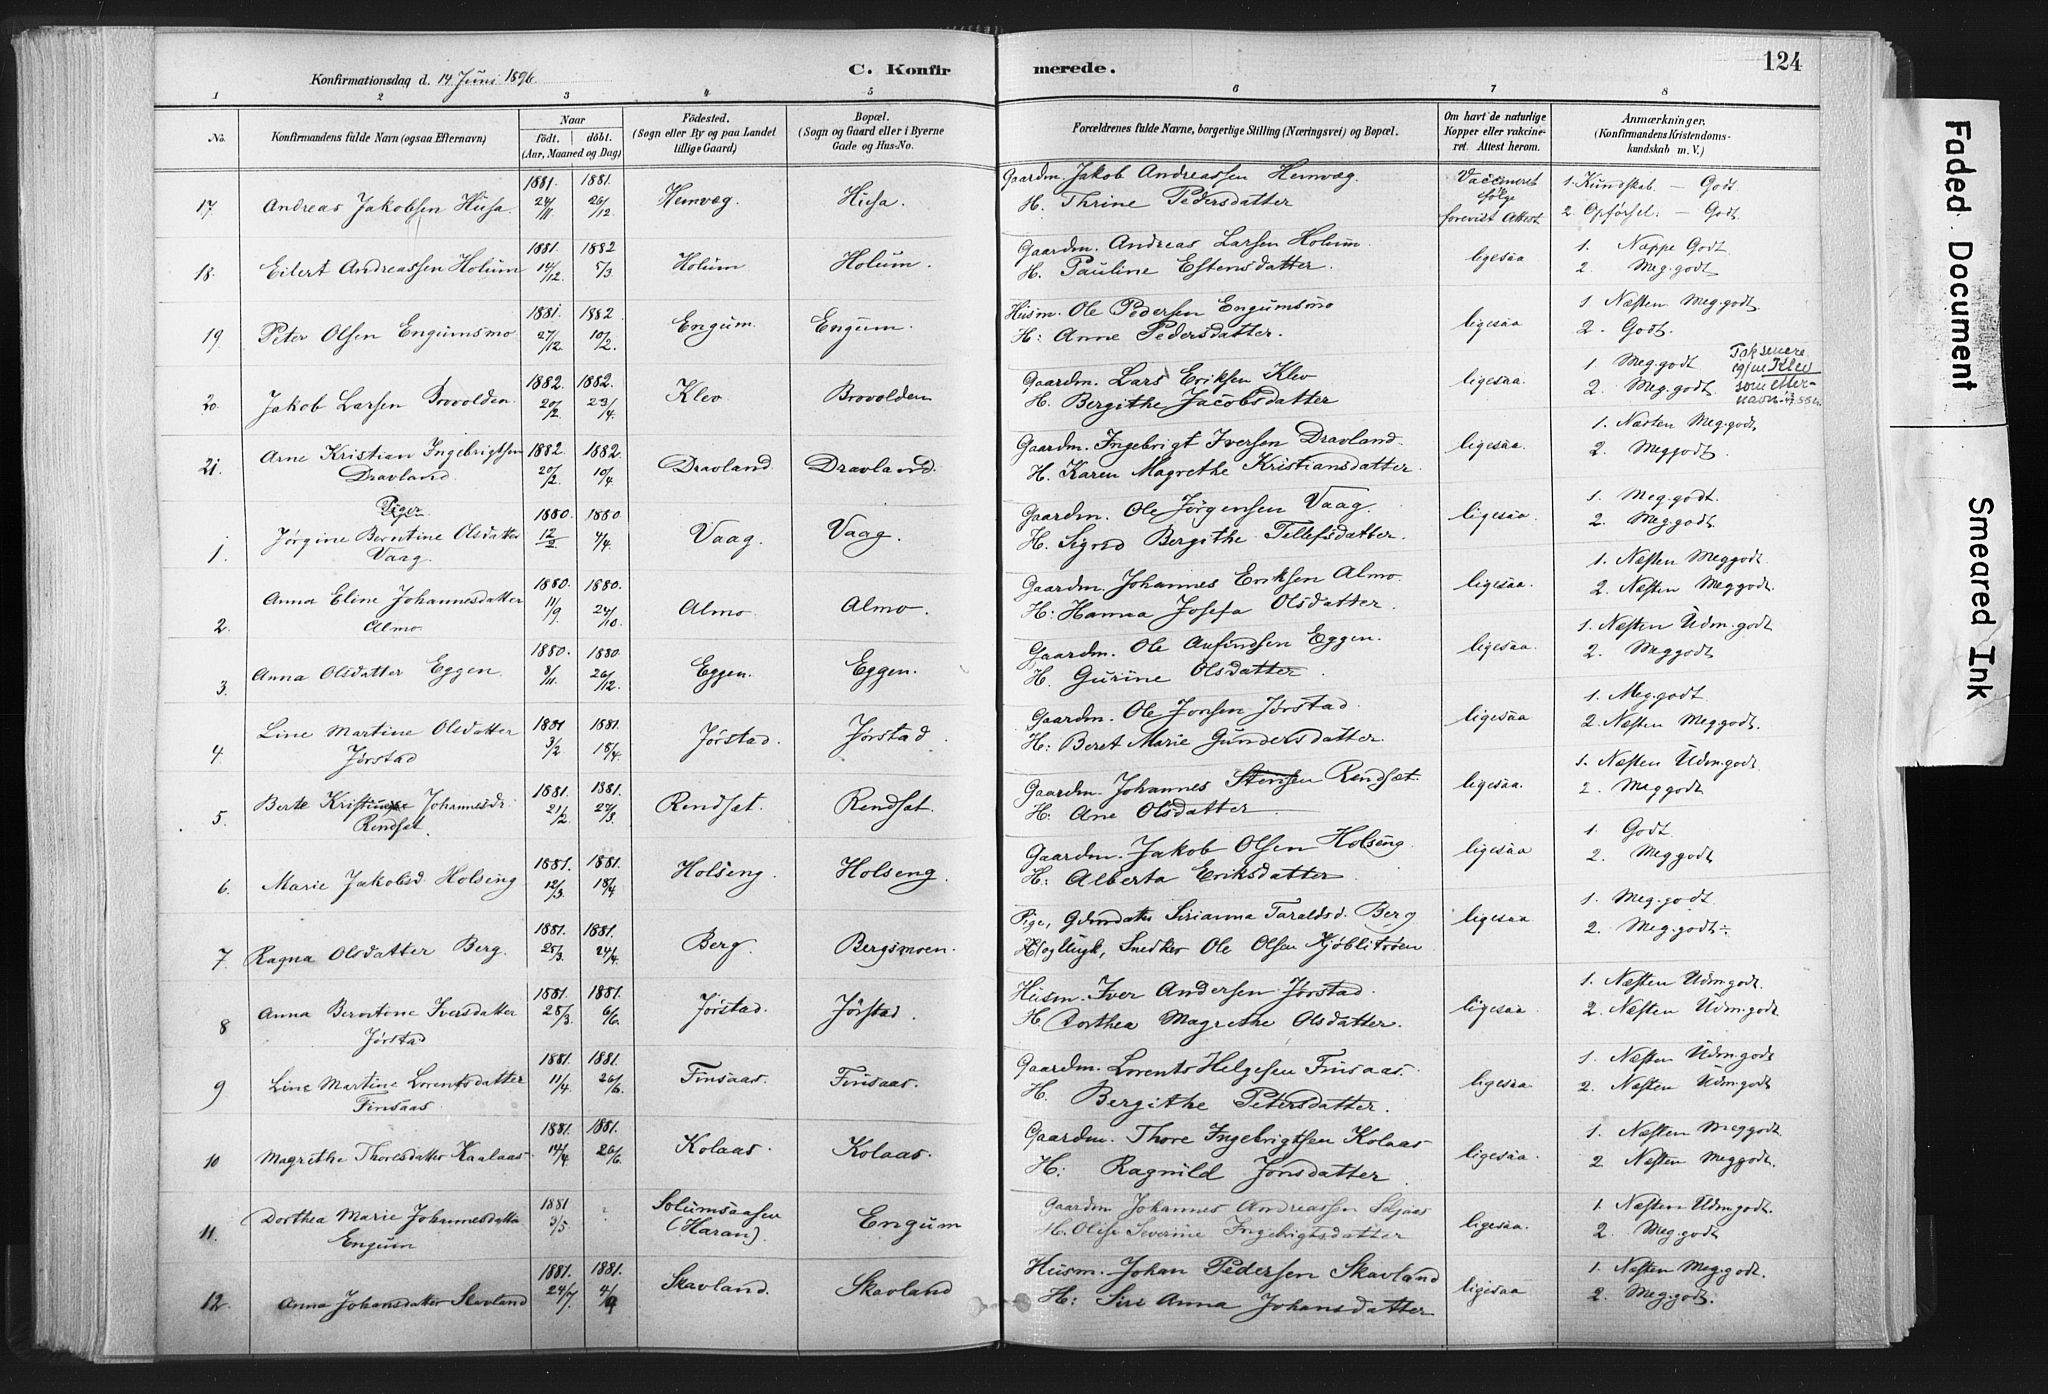 Konfirmationsdag d. 14 Juni 1896. C. Konfirmerede. 124
1 2 3 4 5 6 7 8
No. Konfirmandens fulde Navn (ogsaa Efternavn) Naar Født. døbt. (Aar, Maaned og Dag) Fødested. (Sogn eller By og paa Landet tillige Gaard) Bopæl. (Sogn og Gaard eller i Byerne Gade og Hus-No. Forældrenes fulde Navne, borgerlige Stilling (Næringsvei) og Bopæl. Om havt de naturlige Kopper eller vakcineret. Attest herom. Anmærkninger. (Konfirmandens Kristendomskundskab m. V.)
17. Andreas Jakobsen Husa. 1881. 24/11 1881. 26/12. Hemvæg. Husa. Gaardm. Jakob Andreassen Hemvæg. Vaccineret ifølge 1. Kundskab. – Godt.
H. Thrine Pedersdatter forevist Attest. 2. Opførsel. – Godt.
18. Eilert Andreassen Holum 1881. 14/12. 1882 5/3 Holum Holum. Gaardm. Andreas Larsen Holum. ligesaa 1. Næppe Godt
H. Pauline Estensdatter. 2. Meg. godt
19. Peter Olsen Engumsmo 1881. 27/12. 1882 10/2. Engum. Engum. Husm. Ole Pedersen Engumsmo ligesaa 1. Næsten Meg. godt
H: Anne Pedersdatter. 2. Godt.
20. Jakob Larsen Brovolden. 1882. 20/2. 1882. 23/4. Klev Brovolden Gaardm. Lars Eriksen Klev ligesaa. 1. Meg. godt
H. Bergithe Jacobsdatter 2. Meg. godt.
Tok senere
igjen Klev
som etter-
navn.
21. Arne Kristian Ingebrigtsen 1882. 20/2 1882. 10/4 Dravland. Dravland. Gaardm. Ingebrigt Iversen Dravland. ligesaa. 1. Næsten Meg. godt
Dravland. H. Karen Magrethe Kristiansdatter. 2. Meg godt.
Piger
1. Jørgine Berntine Olsdatter 1880. 12/2 1880 4/4. Vaag. Vaag. Gaardm. Ole Jørgensen Vaag. ligesaa. 1. Meg. godt.
Vaag. H. Sigrid Bergithe Tellefsdatter. 2. Meg. godt.
2. Anna Eline Johannesdatter 1880. 11/9. 1880. 24/10. Almo. Almo. Gaardm. Johannes Eriksen Almo. ligesaa 1. Næsten Meg godt
Almo. H: Hanna Josefa Olsdatter. 2. Næsten Meg godt.
3. Anna Olsdatter Eggen. 1880. 8/11. 1880. 26/12. Eggen. Eggen. Gaardm. Ole Anfindsen Eggen. ligesaa. 1. Næsten Udm. godt
H. Gurine Olsdatter. 2. Meg godt
4. Line Martine Olsdatter 1881 3/2 1881. 18/4. Jørstad. Jørstad. Gaardm. Ole Jonsen Jørstad. ligesaa 1. Meg. godt
Jørstad H: Beret Marie Gundersdatter. 2. Næsten Meg godt.
5. Berte Kristine Johannesdr. 1881. 21/2. 1881. 27/3 Rendsæt. Rendsæt. Gaardm. Johannes Stensen Rendsæt. ligesaa. 1. Næsten Udm. godt
Rendsæt. H: Ane Olsdatter. 2. Meg godt.
6. Marie Jakobsd. Holseng 1881. 12/3. 1881. 18/4 Holseng. Holseng. Gaardm. Jakob Olsen Holseng. ligesaa 1. Godt.
H: Alberta Eriksdatter. 2. Meg godt
7. Ragna Olsdatter Berg. 1881. 25/3. 1881. 24/4. Berg. Bergsmoen. Pige, Gdmdatter Sirianna Taraldsd. Berg ligesaa 1. Meg. godt
Snedker Ole Olsen 2. Meg. godt ÷
8 Anna Berntine Iversdatter 1881. 28/3. 1881. 6/6. Jørstad. Jørstad. Husm. Iver Andersen Jørstad. ligesaa. 1. Næsten Udm. godt.
Jørstad H. Dorthea Magrethe Olsdatter. 2. Næsten Udm. godt
9 Line Martine Lorentsdatter 1881. 11/4. 1881. 26/6. Finsaas. Finsaas. Gaardm. Lorents Helgesen Finsaas. ligesaa. 1. Næsten Udm. godt
Finsaas. H. Bergithe Petersdatter. 2. Næsten Udm. godt
10 Magrethe Thoresdatter Kaalaas. 1881. 14/4 1881. 26/6. Kolaas. Kolaas. Gaardm. Thore Ingebrigtsen Kolaas ligesaa. 1. Næsten Meg godt.
H: Ragnild Jonsdatter. 2. Næsten Meg godt.
11. Dorthea Marie Johannesdatter 1881 3/5. ? Solumsaasen (Haran). Engum Gaardm Johannes Andreassen ligesaa. 1. Næsten Udm. godt.
Engum H. Olise Severine Ingebrigtsdatter 2. Meg. godt
12. Anna Johansdatter Skavland 1881. 24/7. 1881. 4/9 Skavland. Skavland Husm. Johan Pedersen Skavland ligesaa 1. Næsten Meg. godt.
H: Siri Anna Johansdatter 2. Meg. godt.
Faded Document
Smeared Ink